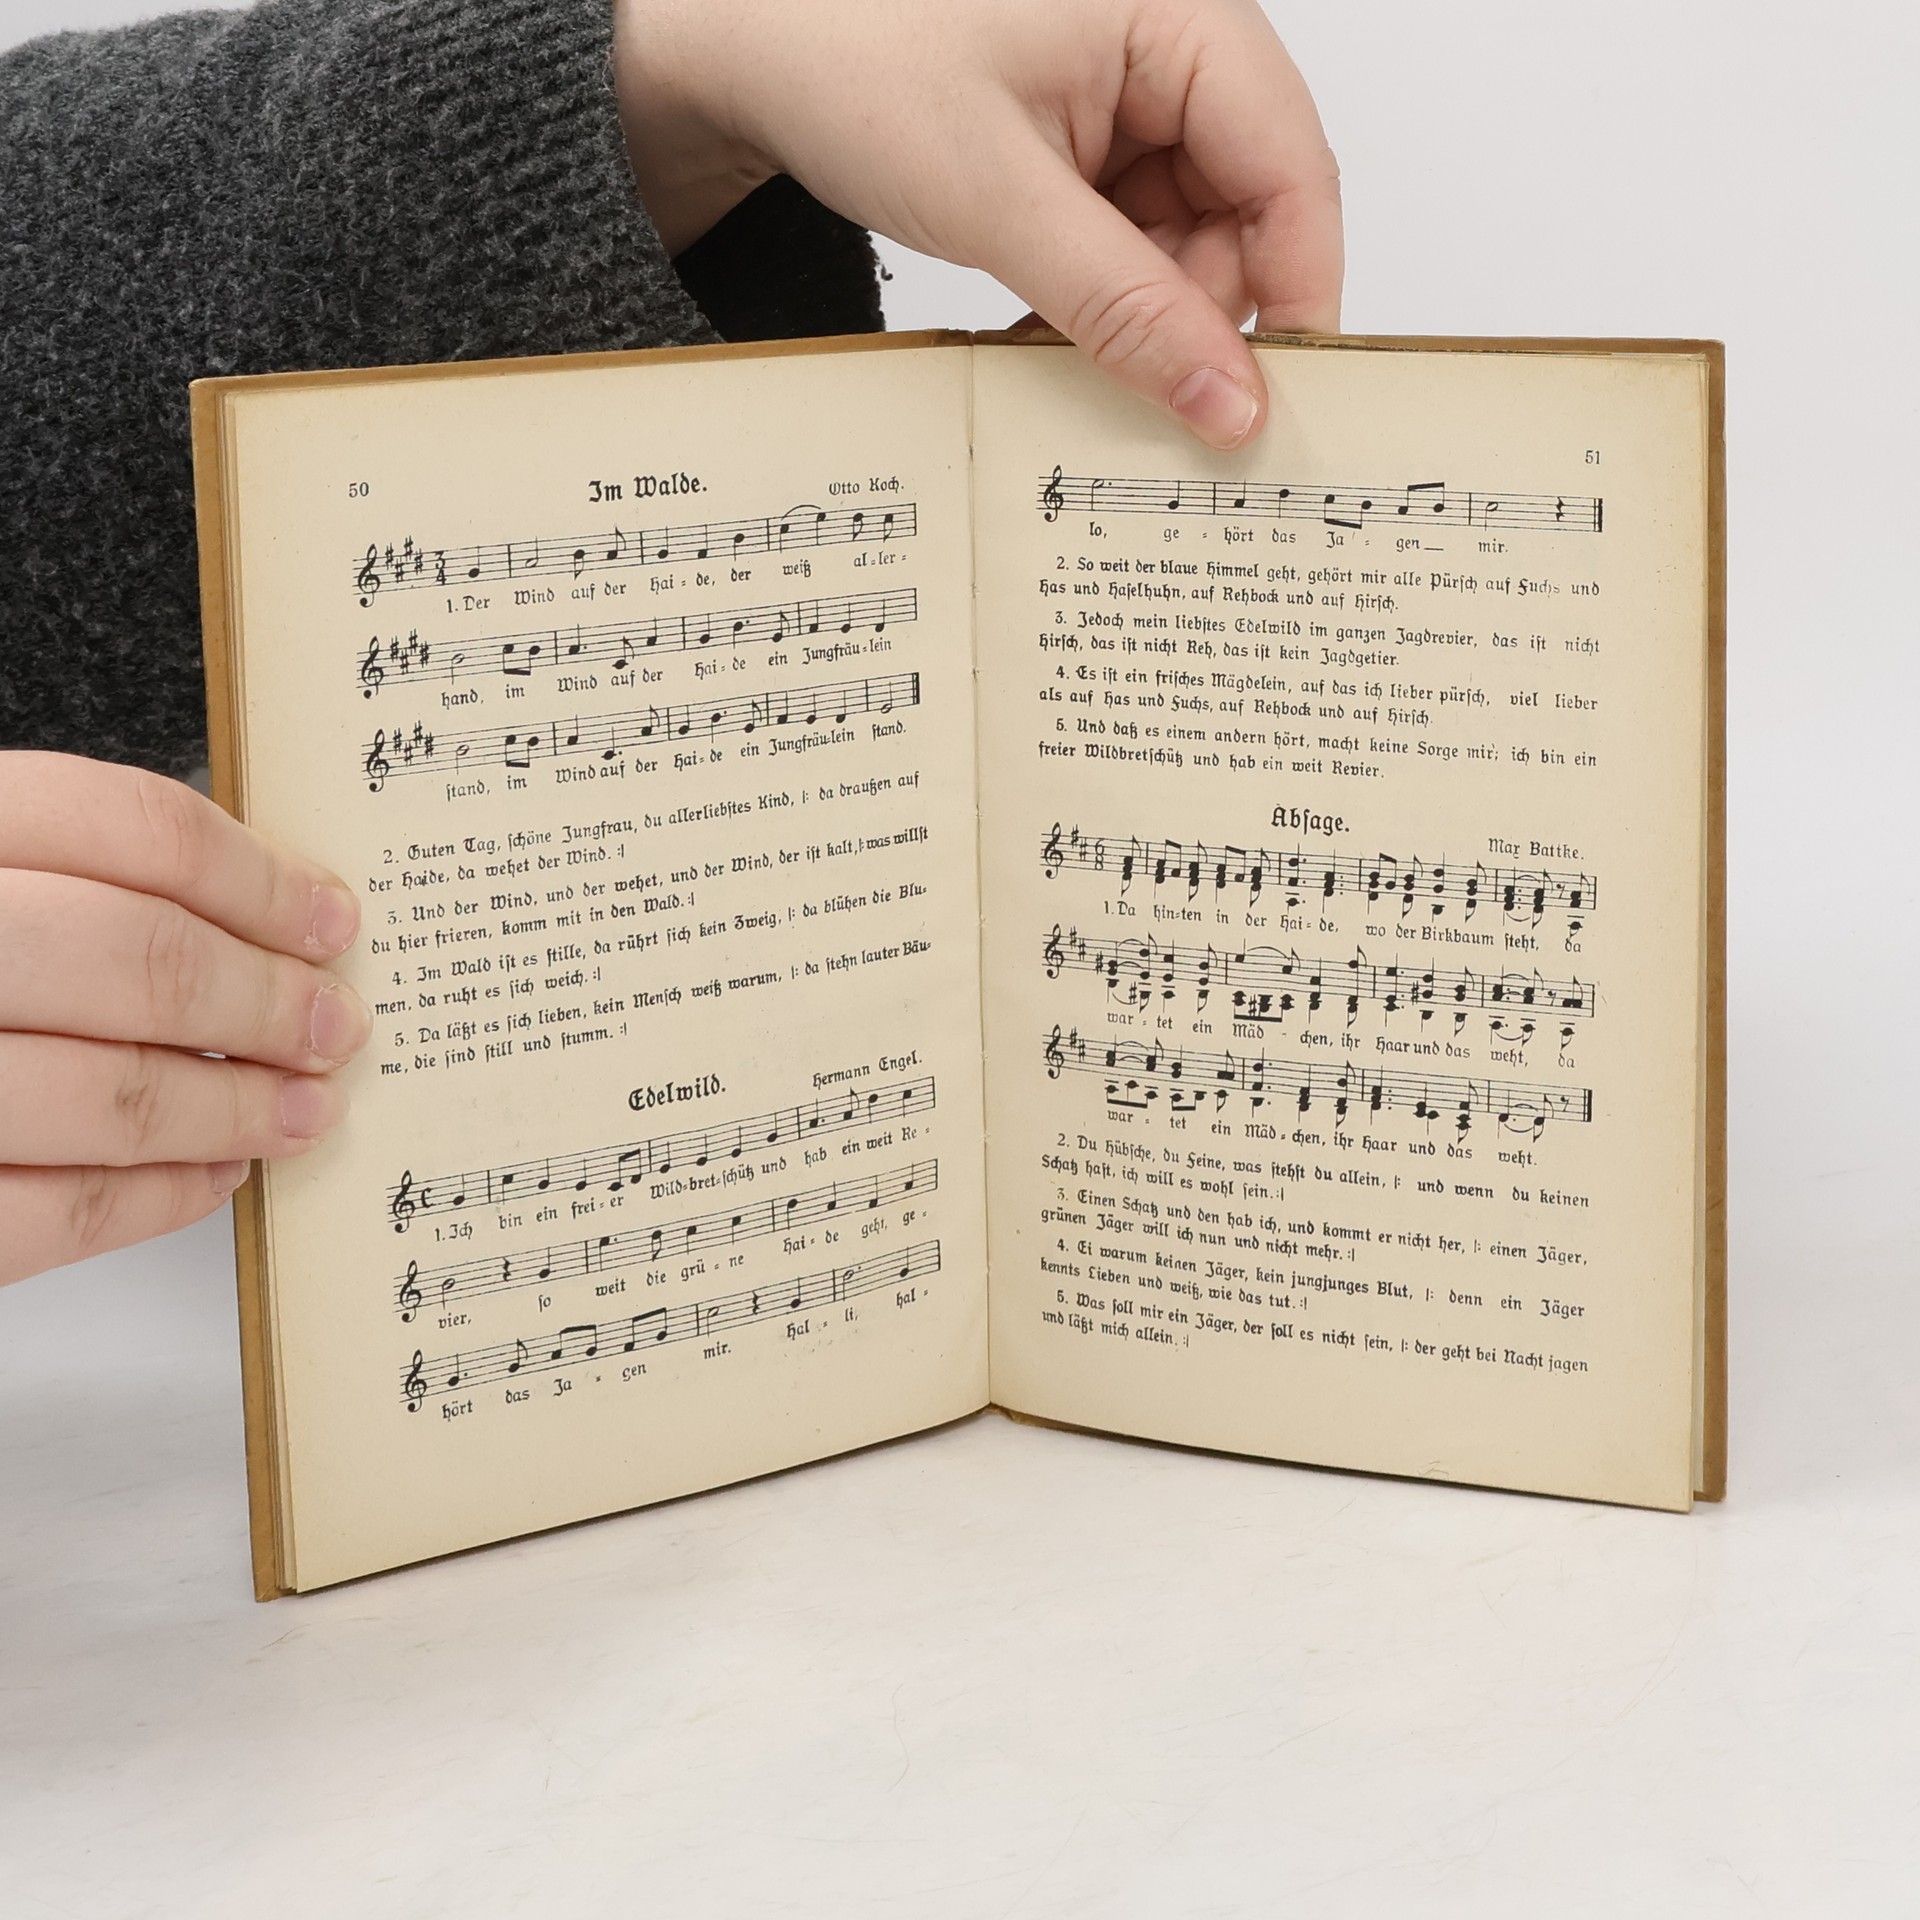 50
Im Walde.
Otto Koch.
1. Der Wind auf der Hai = de, der weiß al = ler =
hand, im Wind auf der Hai = de ein Jungfräu = lein
stand, im Wind auf der Hai = de ein Jungfräu = lein stand.
2. Guten Tag, schöne Jungfrau, du allerliebstes Kind, |: da draußen auf
der Haide, da wehet der Wind. :|
3. Und der Wind, und der wehet, und der Wind, der ist kalt, |: was willst
du hier frieren, komm mit in den Wald. :|
4. Im Wald ist es stille, da rührt sich kein Zweig, |: da blühen die Blu=
men, da ruht es sich weich. :|
5. Da läßt es sich lieben, kein Mensch weiß warum, |: da stehn lauter Bäu=
me, die sind still und stumm. :|
Edelwild.
Hermann Engel.
1. Ich bin ein frei = er Wild = bret = schütz und hab ein weit Re =
vier, so weit die grü = ne Hai = de geht, ge =
hört das Ja = gen mir. Hal = li, hal =
51
lo, ge = hört das Ja = gen mir.
2. So weit der blaue Himmel geht, gehört mir alle Pürsch auf Fuchs und
Has und Haselhuhn, auf Rehbock und auf Hirsch.
3. Jedoch mein liebstes Edelwild im ganzen Jagdrevier, das ist nicht
Hirsch, das ist nicht Reh, das ist kein Jagdgetier.
4. Es ist ein frisches Mägdelein, auf das ich lieber pürsch, viel lieber
als auf Has und Fuchs, auf Rehbock und auf Hirsch.
5. Und daß es einem andern hört, macht keine Sorge mir; ich bin ein
freier Wildbretschütz und hab ein weit Revier.
Absage.
Max Battke.
1. Da hin = ten in der Hai = de, wo der Birkbaum steht, da
war = tet ein Mäd - chen, ihr Haar und das weht, da
war = tet ein Mäd = chen, ihr Haar und das weht.
2. Du Hübsche, du Feine, was stehst du allein, |: und wenn du keinen
Schatz hast, ich will es wohl sein. :|
3. Einen Schatz und den hab ich, und kommt er nicht her, |: einen Jäger,
grünen Jäger will ich nun und nicht mehr. :|
4. Ei warum keinen Jäger, kein jungjunges Blut, |: denn ein Jäger
kennts Lieben und weiß, wie das tut. :|
5. Was soll mir ein Jäger, der soll es nicht sein, |: der geht bei Nacht jagen
und läßt mich allein. :|